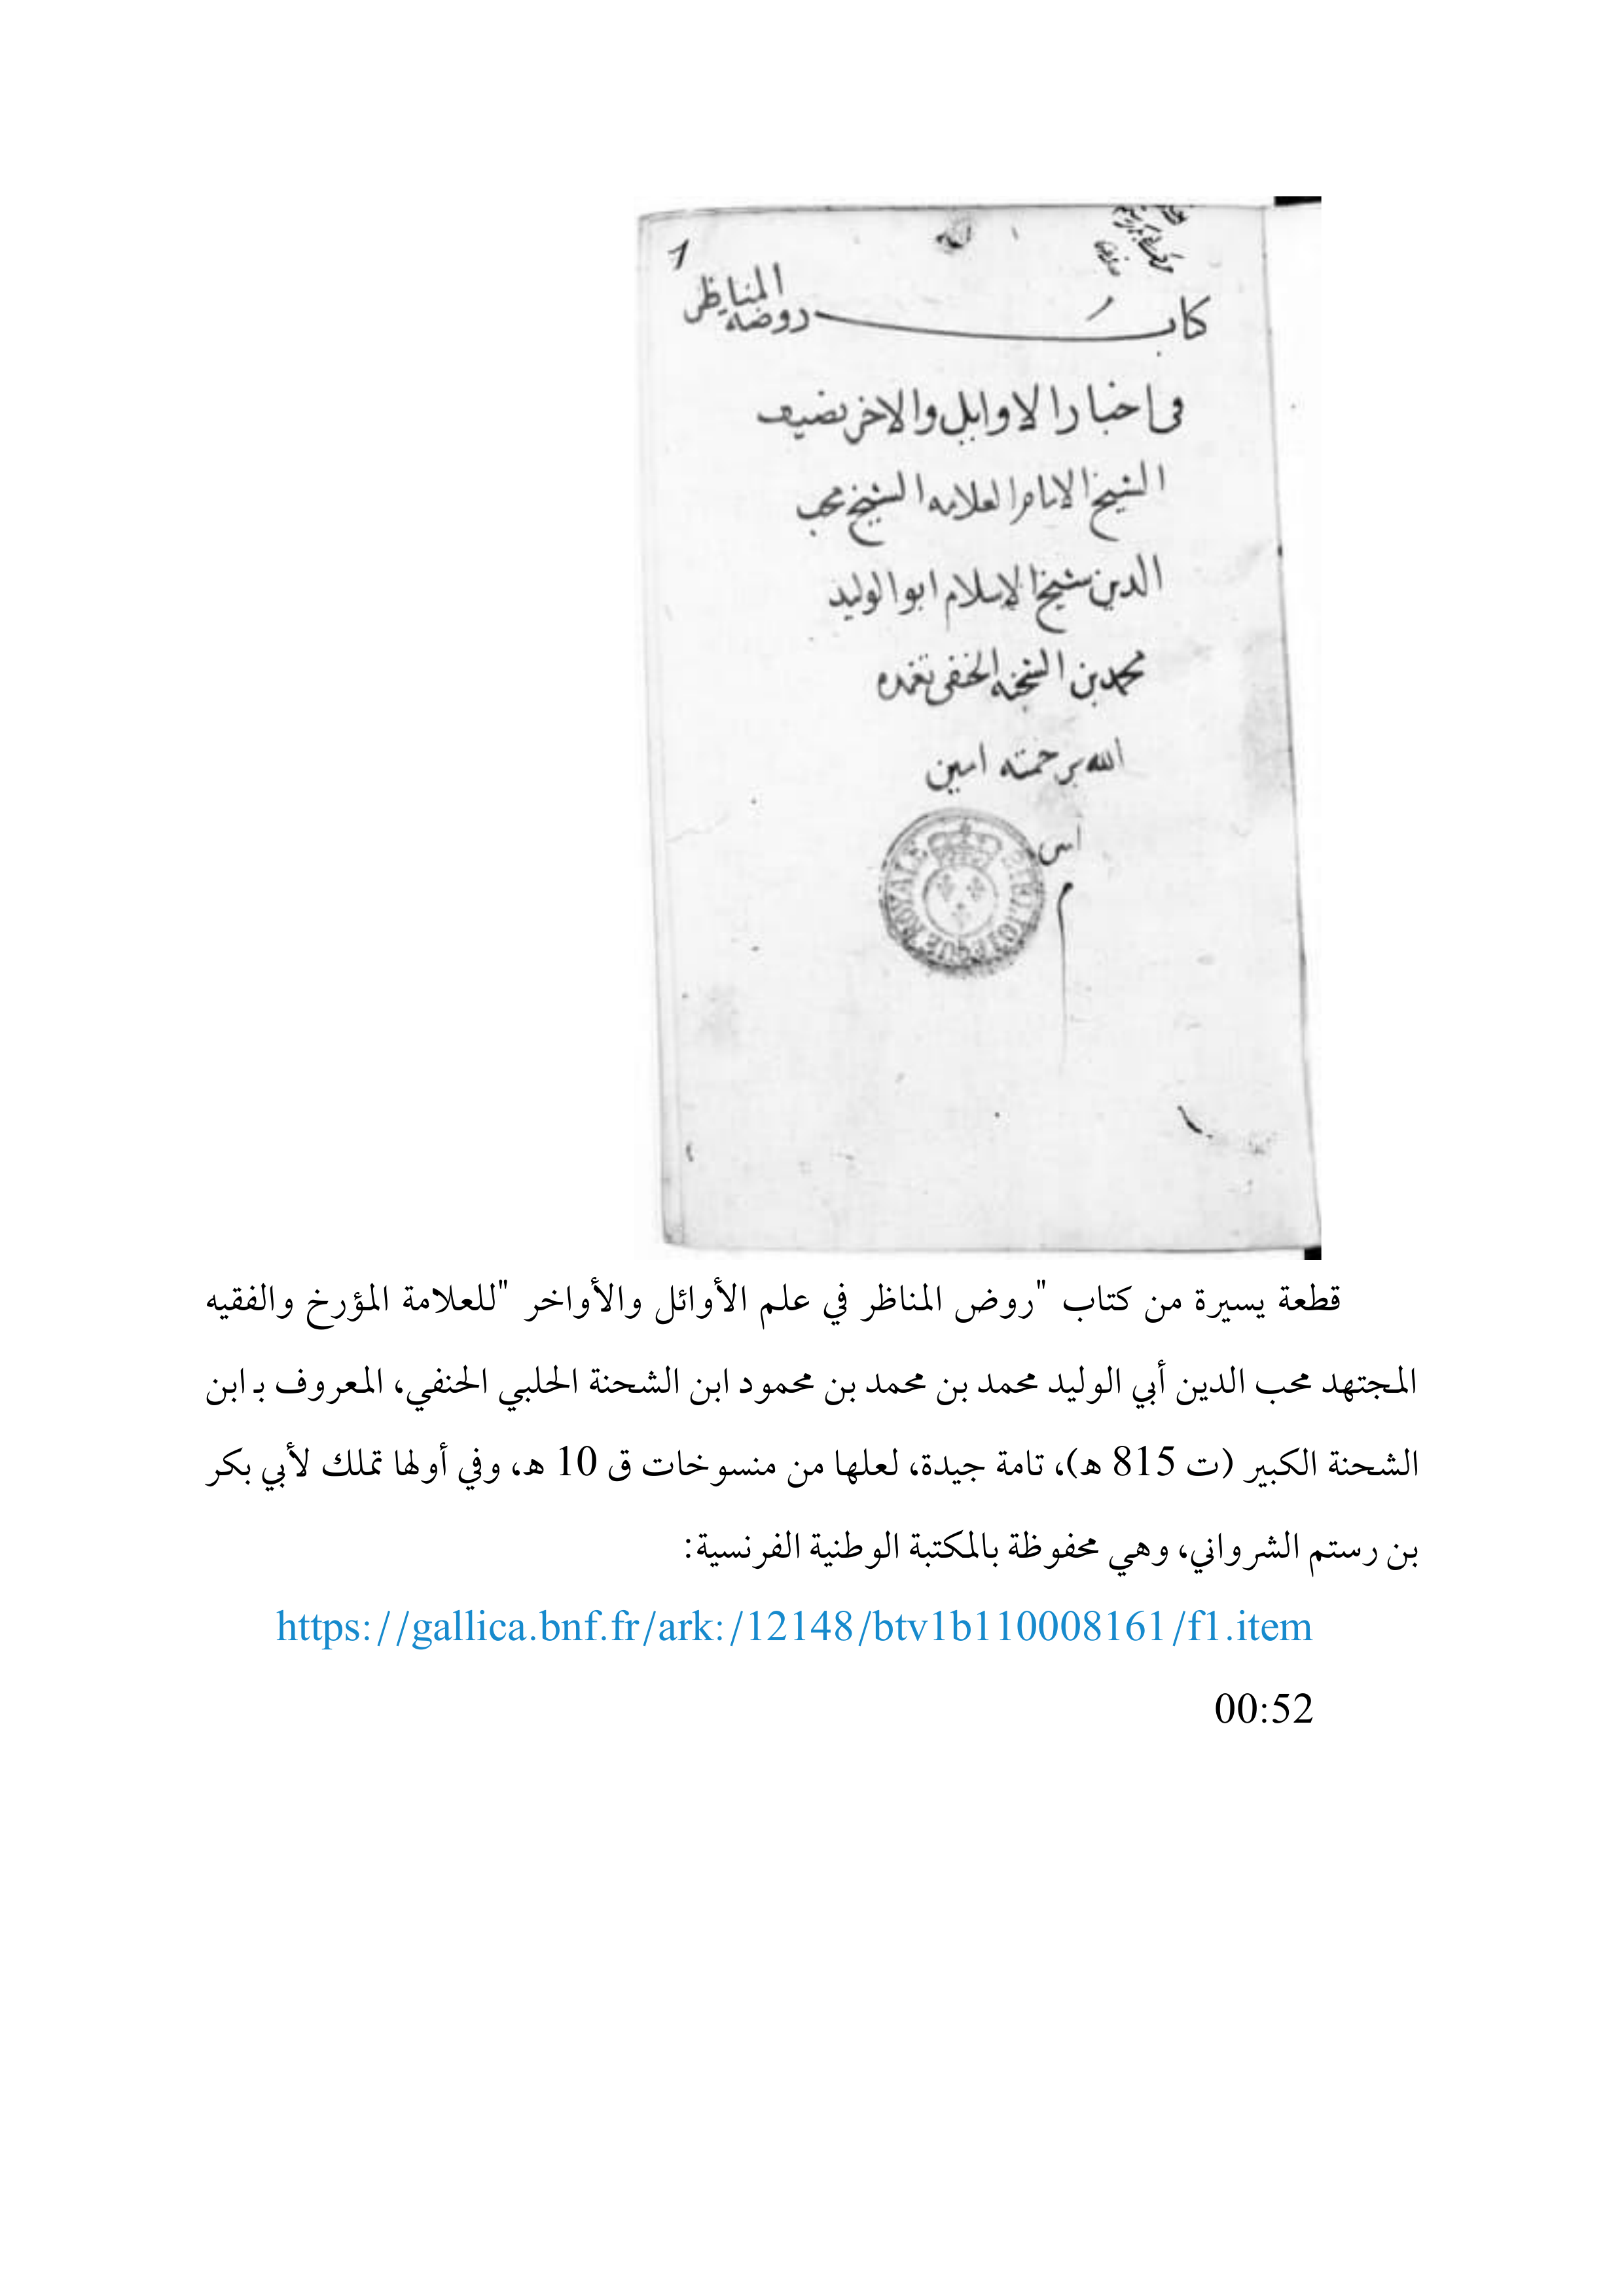 1
كتاب روضه المناظر
فى اخبار الاوايل والاخر تصنيف
الشيخ الامام العلامه الشيخ محب
الدين شيخ الاسلام ابو الوليد
محمد بن الشحنه الحنفى تغمده
الله برحمته امين
امين
م
BIBLIOTEQUE ROYALE
قطعة يسيرة من كتاب "روض المناظر في علم الأوائل والأواخر "للعلامة المؤرخ والفقيه
المجتهد محب الدين أبي الوليد محمد بن محمد بن محمود ابن الشحنة الحلبي الحنفي، المعروف بـ ابن
الشحنة الكبير (ت 815 هـ)، تامة جيدة، لعلها من منسوخات ق 10 هـ، وفي أولها تملك لأبي بكر
بن رستم الشرواني، وهي محفوظة بالمكتبة الوطنية الفرنسية:
https://gallica.bnf.fr/ark:/12148/btv1b110008161/f1.item
00:52